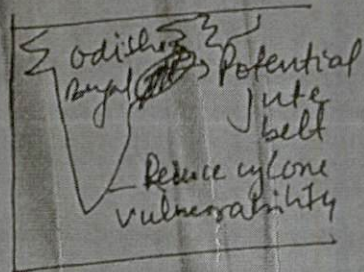 Odisha
Bengal
Potential
jute
belt
Reduce cyclone
vulnerability